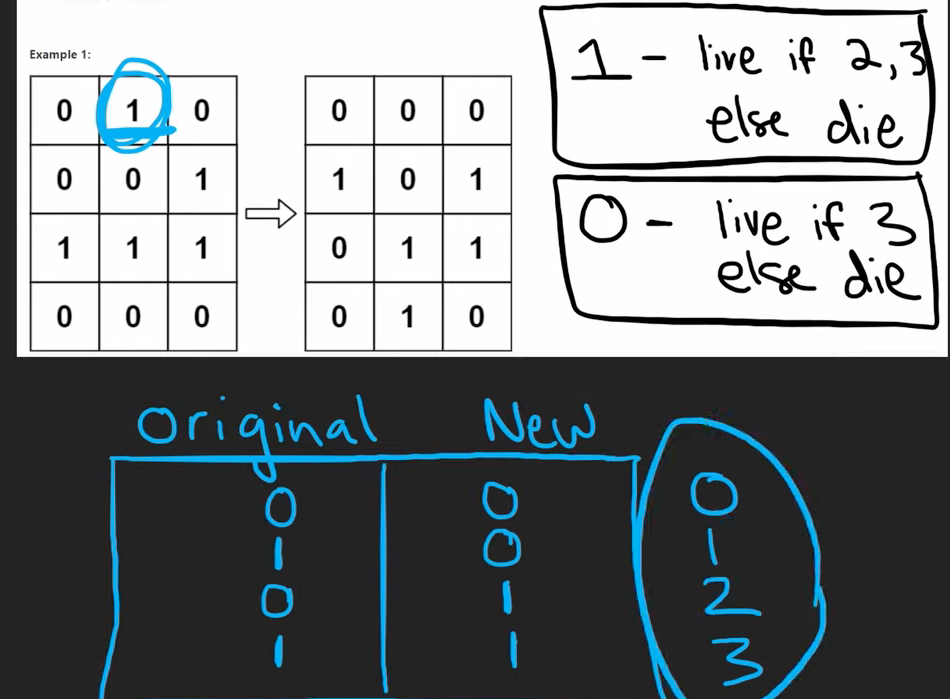 Example 1:
0 1 0 0 0 0
0 0 1 1 0 1
1 1 1 0 1 1
0 0 0 0 1 0
1 - live if 2,3
else die
0 - live if 3
else die
Original New
0 0 0
1 0 1
0 1 2
1 1 3